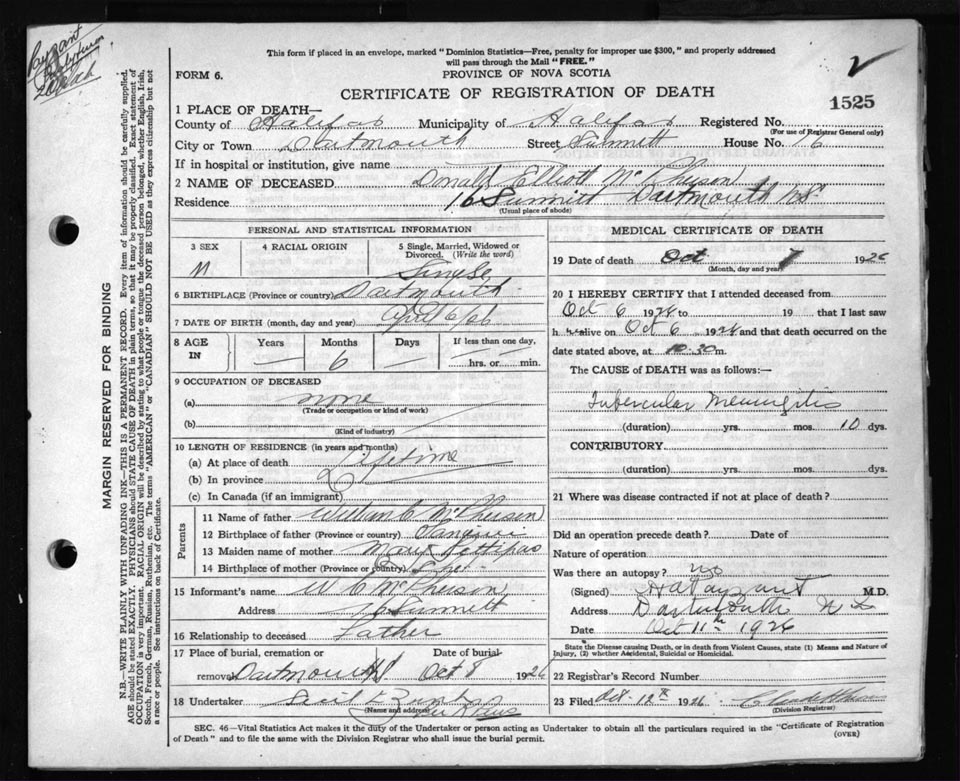 This form if placed in an envelope, marked "Dominion Statistics—Free, penalty for improper use $300," and properly addressed
will pass through the Mail "FREE."
PROVINCE OF NOVA SCOTIA
FORM 6.
CERTIFICATE OF REGISTRATION OF DEATH
1525
1 PLACE OF DEATH—
County of Halifax Municipality of Halifax Registered No.
(For use of Registrar General only)
City or Town Dartmouth Street Summitt House No. 16
If in hospital or institution, give name
2 NAME OF DECEASED Donald Elliott McPherson
Residence 16 Summitt Dartmouth NS
(Usual place of abode)
PERSONAL AND STATISTICAL INFORMATION
3 SEX 4 RACIAL ORIGIN 5 Single, Married, Widowed or Divorced. (Write the word)
M Single
6 BIRTHPLACE (Province or country) Dartmouth
7 DATE OF BIRTH (month, day and year) April 6/26
8 AGE IN Years Months Days If less than one day,
6 hrs. or min.
9 OCCUPATION OF DECEASED
(a) none
(Trade or occupation or kind of work)
(b)
(Kind of industry)
10 LENGTH OF RESIDENCE (in years and months)
(a) At place of death Lifetime
(b) In province
(c) In Canada (if an immigrant)
Parents
11 Name of father William C McPherson
12 Birthplace of father (Province or country)
13 Maiden name of mother Mary Pettipas
14 Birthplace of mother (Province or country)
15 Informant's name W C McPherson
Address 16 Summitt
16 Relationship to deceased Father
17 Place of burial, cremation or removal Dartmouth NS Date of burial Oct 8 1926
18 Undertaker
(Name and address)
MEDICAL CERTIFICATE OF DEATH
19 Date of death Oct 7 1926
(Month, day and year)
20 I HEREBY CERTIFY that I attended deceased from
Oct 6 1926 to 19 that I last saw
h alive on Oct 6 1926 and that death occurred on
date stated above, at 10.30 m.
The CAUSE of DEATH was as follows:—
Tubercular Meningitis
(duration) yrs. mos. 10 dys.
CONTRIBUTORY
(duration) yrs. mos. dys.
21 Where was disease contracted if not at place of death?
Did an operation precede death? Date of
Nature of operation
Was there an autopsy? no
(Signed) H A Payzant M.D.
Address Dartmouth N S
Date Oct 11th 1926
State the Disease causing Death, or in death from Violent Causes, state (1) Means and Nature of
Injury, (2) whether Accidental, Suicidal or Homicidal.
22 Registrar's Record Number
23 Filed Oct 12th 1926
(Division Registrar)
SEC. 46—Vital Statistics Act makes it the duty of the Undertaker or person acting as Undertaker to obtain all the particulars required in the "Certificate of Registration
of Death" and to file the same with the Division Registrar who shall issue the burial permit.
(OVER)
MARGIN RESERVED FOR BINDING
N.B.—WRITE PLAINLY WITH UNFADING INK—THIS IS A PERMANENT RECORD. Every item of information should be carefully supplied.
AGE should be stated EXACTLY. PHYSICIANS should STATE CAUSE OF DEATH in plain terms, so that it may be properly classified. Exact statement of
OCCUPATION is very important. RACIAL ORIGIN will be described by stating to what people or tongue the deceased person belonged, whether English, Irish,
Scotch, French, German, Russian, Ruthenian, etc. The terms "AMERICAN" or "CANADIAN" SHOULD NOT BE USED as they express citizenship but not
a race or people. See instructions on back of Certificate.